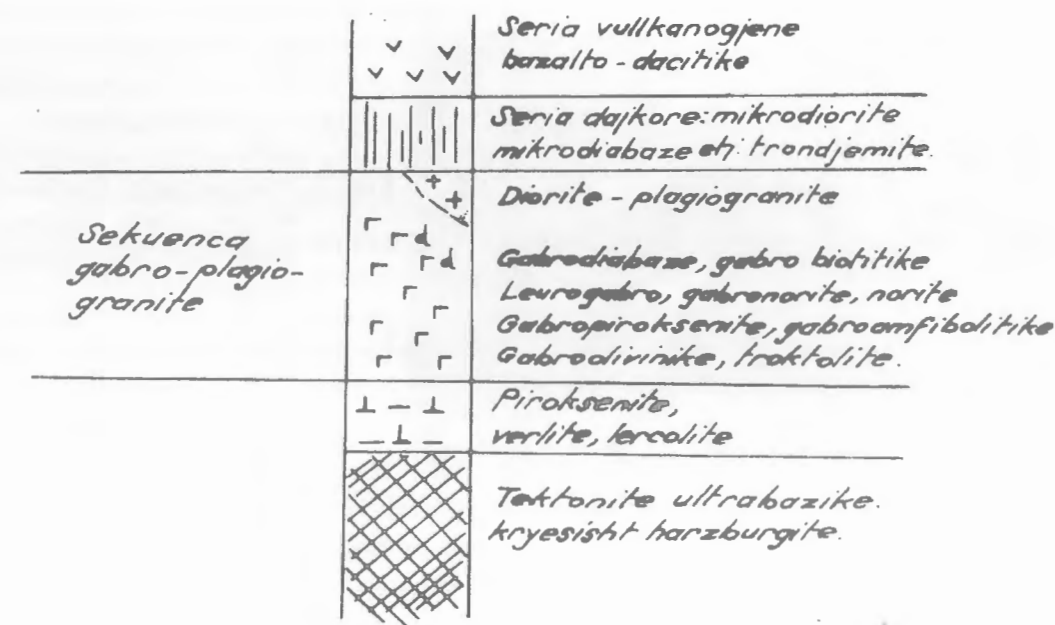 Seria vullkanogjene
bazalto - dacitike
Seria dajkore: mikrodiorite
mikrodiabaze etj. trondjemite.
Diorite - plagiogranite
Sekuenca
gabro-plagio-
granite
Gabrodiabaze, gabro biotitike
Leurogabro, gabronorite, norite
Gabropiroksenite, gabroamfibolitike
Gabroolivinike, troktolite.
Piroksenite,
verlite, lercolite
Tektonite ultrabazike.
kryesisht harzburgite.